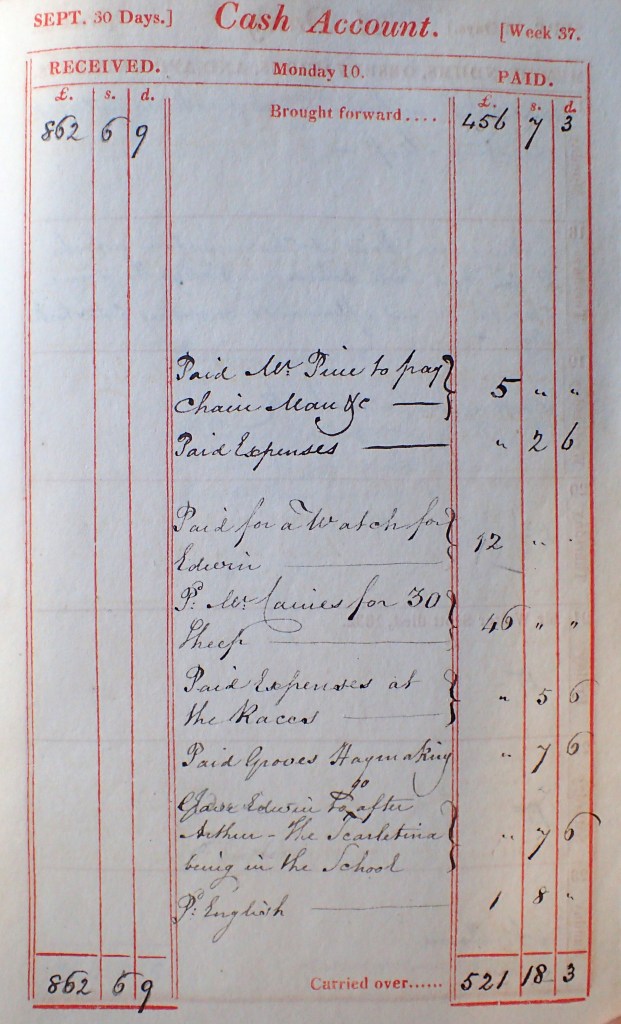 SEPT. 30 Days.] Cash Account. [Week 37.
RECEIVED. Monday 10. PAID.
£. s. d. £. s. d.
862 6 9 Brought forward.... 456 7 3
Paid Mr. Pine to pay
Chain Man &c — 5 " "
Paid Expenses — " 2 6
Paid for a Watch for
Edwin — 12 " "
Pd. Mr. Caines for 30
Sheep — 46 " "
Paid Expenses at
the Races — " 5 6
Paid Groves Haymaking " 7 6
go
Gave Edwin to after
Arthur - the Scarletina
being in the School " 7 6
Pd. English — 1 8 "
862 6 9 Carried over...... 521 18 3